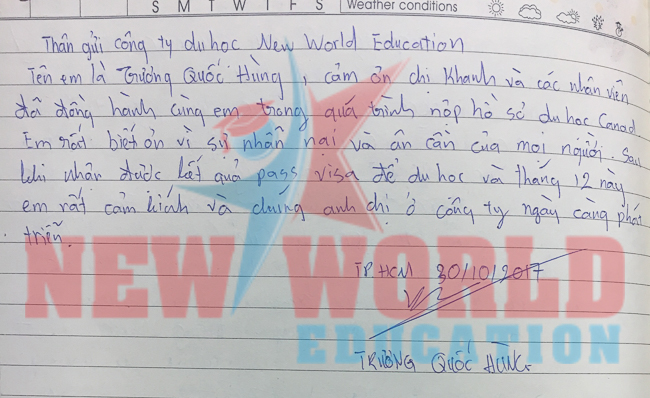 S M T W T F S Weather conditions
Thân gửi công ty du học New World Education
Tên em là Trương Quốc Hùng, cảm ơn chị Khanh và các nhân viên
đã đồng hành cùng em trong quá trình nộp hồ sơ du học Canad
Em rất biết ơn vì sự nhẫn nại và ân cần của mọi người. Sau
khi nhận được kết quả pass visa để du học và tháng 12 này
em rất cảm kích và chúng anh chị ở công ty ngày càng phát
triển.
TP HCM 30/10/2017
TRƯƠNG QUỐC HÙNG
NEW WORLD
EDUCATION